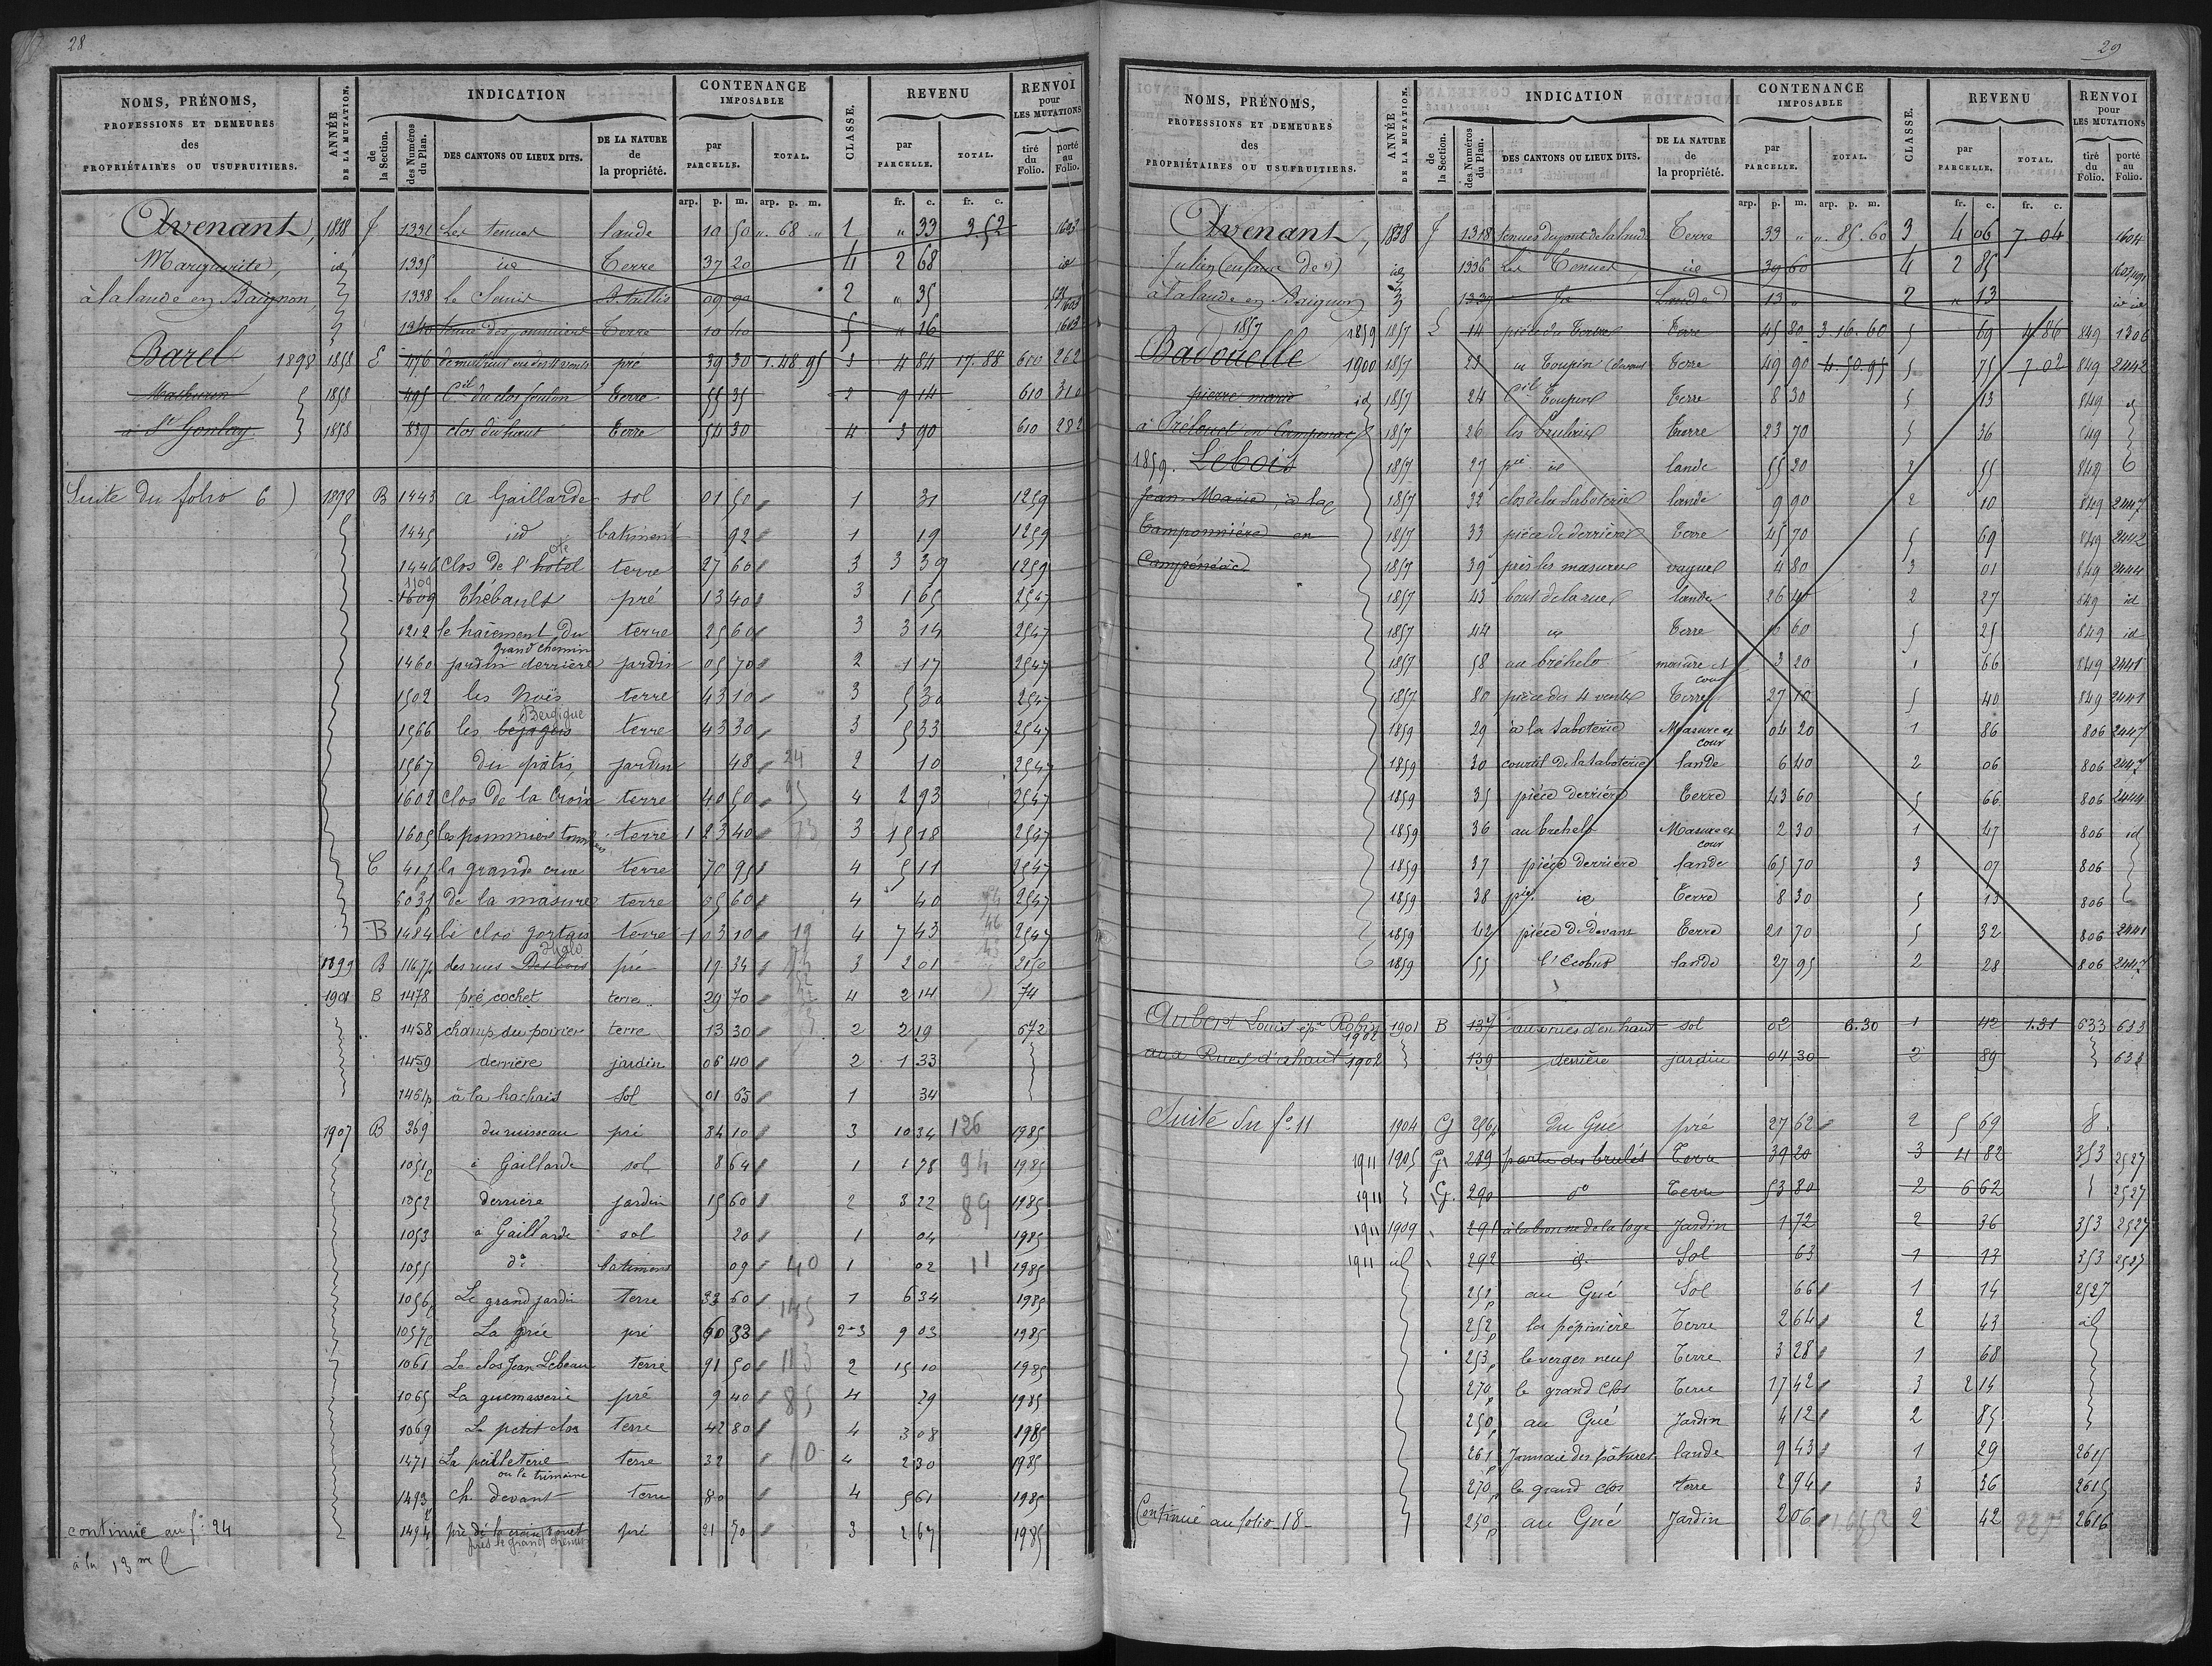 28
NOMS, PRÉNOMS, PROFESSIONS ET DEMEURES des PROPRIÉTAIRES OU USUFRUITIERS.
ANNÉE DE LA MUTATION.
INDICATION
de la Section.
des Numéros du Plan.
DES CANTONS OU LIEUX DITS.
DE LA NATURE de la propriété.
CONTENANCE IMPOSABLE
par PARCELLE.
TOTAL.
CLASSE.
REVENU
par PARCELLE.
TOTAL.
RENVOI pour LES MUTATIONS
tiré du Folio.
porté au Folio.
arp. p. m. arp. p. m. fr. c. fr. c.
Avenant, 1838 J 1331 Les tenues lande 10 50 „ 68 „ 1 „ 33 3.52 1603
Marguerite, id 1335 id Terre 37 20 4 2 68 id
à la lande en Baignon, 1338 le Semis B. Taillis 09 90 2 „ 35
1340 Terre 10 40 5 „ 16 1603
Barel 1898 1858 E 476 pré 39 30 1.48.95 3 4 84 17.88 610 262
Mathurin 1858 495 Cil du clos foulon Terre 55 35 2 9 14 610 310
à St Gonlay 1858 839 clos du haut Terre 54 30 4 3 90 610 282
Suite du folio 6) 1898 B 1443 a Gaillarde sol 01 50 1 31 1259
1445 id batiment 92 1 19 1259
1446 clos de l'hotel côté terre 27 60 3 3 39 1259
1109 1609 Thébault pré 13 40 3 1 65 2547
1212 le haiement du grand chemin terre 25 60 3 3 14 2547
1460 jardin derrière jardin 05 70 2 1 17 2547
1502 les Noës terre 43 10 3 5 30 2547
1566 les bejagois Bergigue terre 43 30 3 5 33 2547
1567 du pâtis jardin 48 24 2 10 2547
1602 clos de la Croix terre 40 50 95 4 2 93 2547
1605 les pommiers terre 1 23 40 73 3 15 18 2547
C 417 la grande crue terre 70 95 4 5 11 2547
603p de la masure terre 05 60 4 40 2547
B 1484 le clos gortais terre 1 03 10 19 4 7 43 2547
1899 B 1167p des rues Desbois Halo pré 19 34 3 2 01 2150
1901 B 1478 pré cochet terre 29 70 4 2 14 74
1458 champ du poirier terre 13 30 2 2 19 672
1459 derrière jardin 06 40 2 1 33
1461p à la hachais sol 01 65 1 34
1907 B 369 du ruisseau pré 84 10 3 10 34 126 1985
1051p à Gaillarde sol 8 64 1 1 78 94 1985
1052 derrière jardin 15 60 2 3 22 89 1985
1053 à Gaillarde sol 20 1 04 1985
1055 do batiment 09 40 1 02 11 1985
1056p Le grand jardin terre 33 60 145 1 6 34 1985
1057p La prée pré 60 33 2-3 9 03 1985
1061 Le clos Jean Lebeau terre 91 50 113 2 15 10 1985
1065 La guemasserie pré 9 40 85 4 29 1985
1069 Le petit clos terre 42 80 4 3 08 1985
1471 La peilleterie ou la trimaine terre 32 10 4 2 30 1985
1493 ch. devant terre 80 4 5 61 1985
continué au fo 24 1494 pré de la croix rouet près le grand chemin pré 21 50 3 2 67 1985
à la 13me l
29
NOMS, PRÉNOMS, PROFESSIONS ET DEMEURES des PROPRIÉTAIRES OU USUFRUITIERS.
ANNÉE DE LA MUTATION.
INDICATION
de la Section.
des Numéros du Plan.
DES CANTONS OU LIEUX DITS.
DE LA NATURE de la propriété.
CONTENANCE IMPOSABLE
par PARCELLE.
TOTAL.
CLASSE.
REVENU
par PARCELLE.
TOTAL.
RENVOI pour LES MUTATIONS
tiré du Folio.
porté au Folio.
arp. p. m. arp. p. m. fr. c. fr. c.
Avenant, 1838 J 1318 Terre 33 „ „.85.60 3 4 06 7.04 1604
Julien (enfans de) id 1336 Les Tenues id 39 60 4 2 85
à la lande en Baignon 1337 Lande 13 „ 2 „ 13 id id
1857 1859 1857 L 14 pièce de Terre 45 80 3.16.60 5 69 4.86 849 1306
Badouelle 1900 1857 23 Terre 49 90 4.50.95 5 75 7.02 849 2442
pierre marie id 1857 24 Terre 8 30 5 13 849 id
à Trélouet en Campénéac 1857 26 les brulais Terre 23 70 5 36 849
1859. Lebois 1857 27 id lande 55 20 2 55 849
Jean-Marie, à la 1857 32 clos de la Saboterie lande 9 90 2 10 849 2447
Camponnière en 1857 33 pièce de derrière Terre 45 70 5 69 849 2442
Campénéac 1857 39 près les masures vague 4 80 3 01 849 2444
1857 43 bout de la rue lande 26 40 2 27 849 id
1857 44 id Terre 16 60 5 25 849 id
1857 58 au bréhelo masure et cour 3 20 1 66 849 2441
1857 80 pièce des 4 vents Terre 27 10 5 40 849 2441
1859 29 à la Saboterie Masure et cour 04 20 1 86 806 2447
1859 30 courtil de la Saboterie lande 6 40 2 06 806 2447
1859 35 pièce derrière Terre 43 60 5 66 806 2444
1859 36 au brehelo Masure et cour 2 30 1 47 806 id
1859 37 pièce derrière lande 65 70 3 07 806
1859 38 id Terre 8 30 5 13 806
1859 42 pièce de devant Terre 21 70 5 32 806 2441
1859 55 l'Ecobus lande 27 95 2 28 806 2447
Aubert Louis ép. Robin 1902 1901 B 137 aux rues d'en haut sol 02 6.30 1 42 1.31 633 633
aux Rues d'ahaut 1902 139 derrière jardin 04 30 2 89 633
Suite du fo 11 1904 G 256p du Gué pré 27 62 2 5 69 8
1911 1905 G 289 partie des brulés Terre 39 20 3 4 82 353 2527
1911 G. 290 do Terre 53 80 2 6 62 2527
1911 1909 291 Jardin 1 72 2 36 353 2527
1911 id 292 id. Sol 63 1 13 353 2527
251p au Gué Sol 66 1 14 2527
252p la pépinière Terre 2 64 2 43 id
253p le verger neuf Terre 3 28 1 68
270p le grand Clos Terre 17 42 3 2 14
250p au Gué Jardin 4 12 2 85
261p Jannaie des pâtures lande 9 43 1 29 2615
270p le grand clos terre 2 94 3 36 2615
Continué au folio 18- 250p au Gué Jardin 2 06 2 42 2616